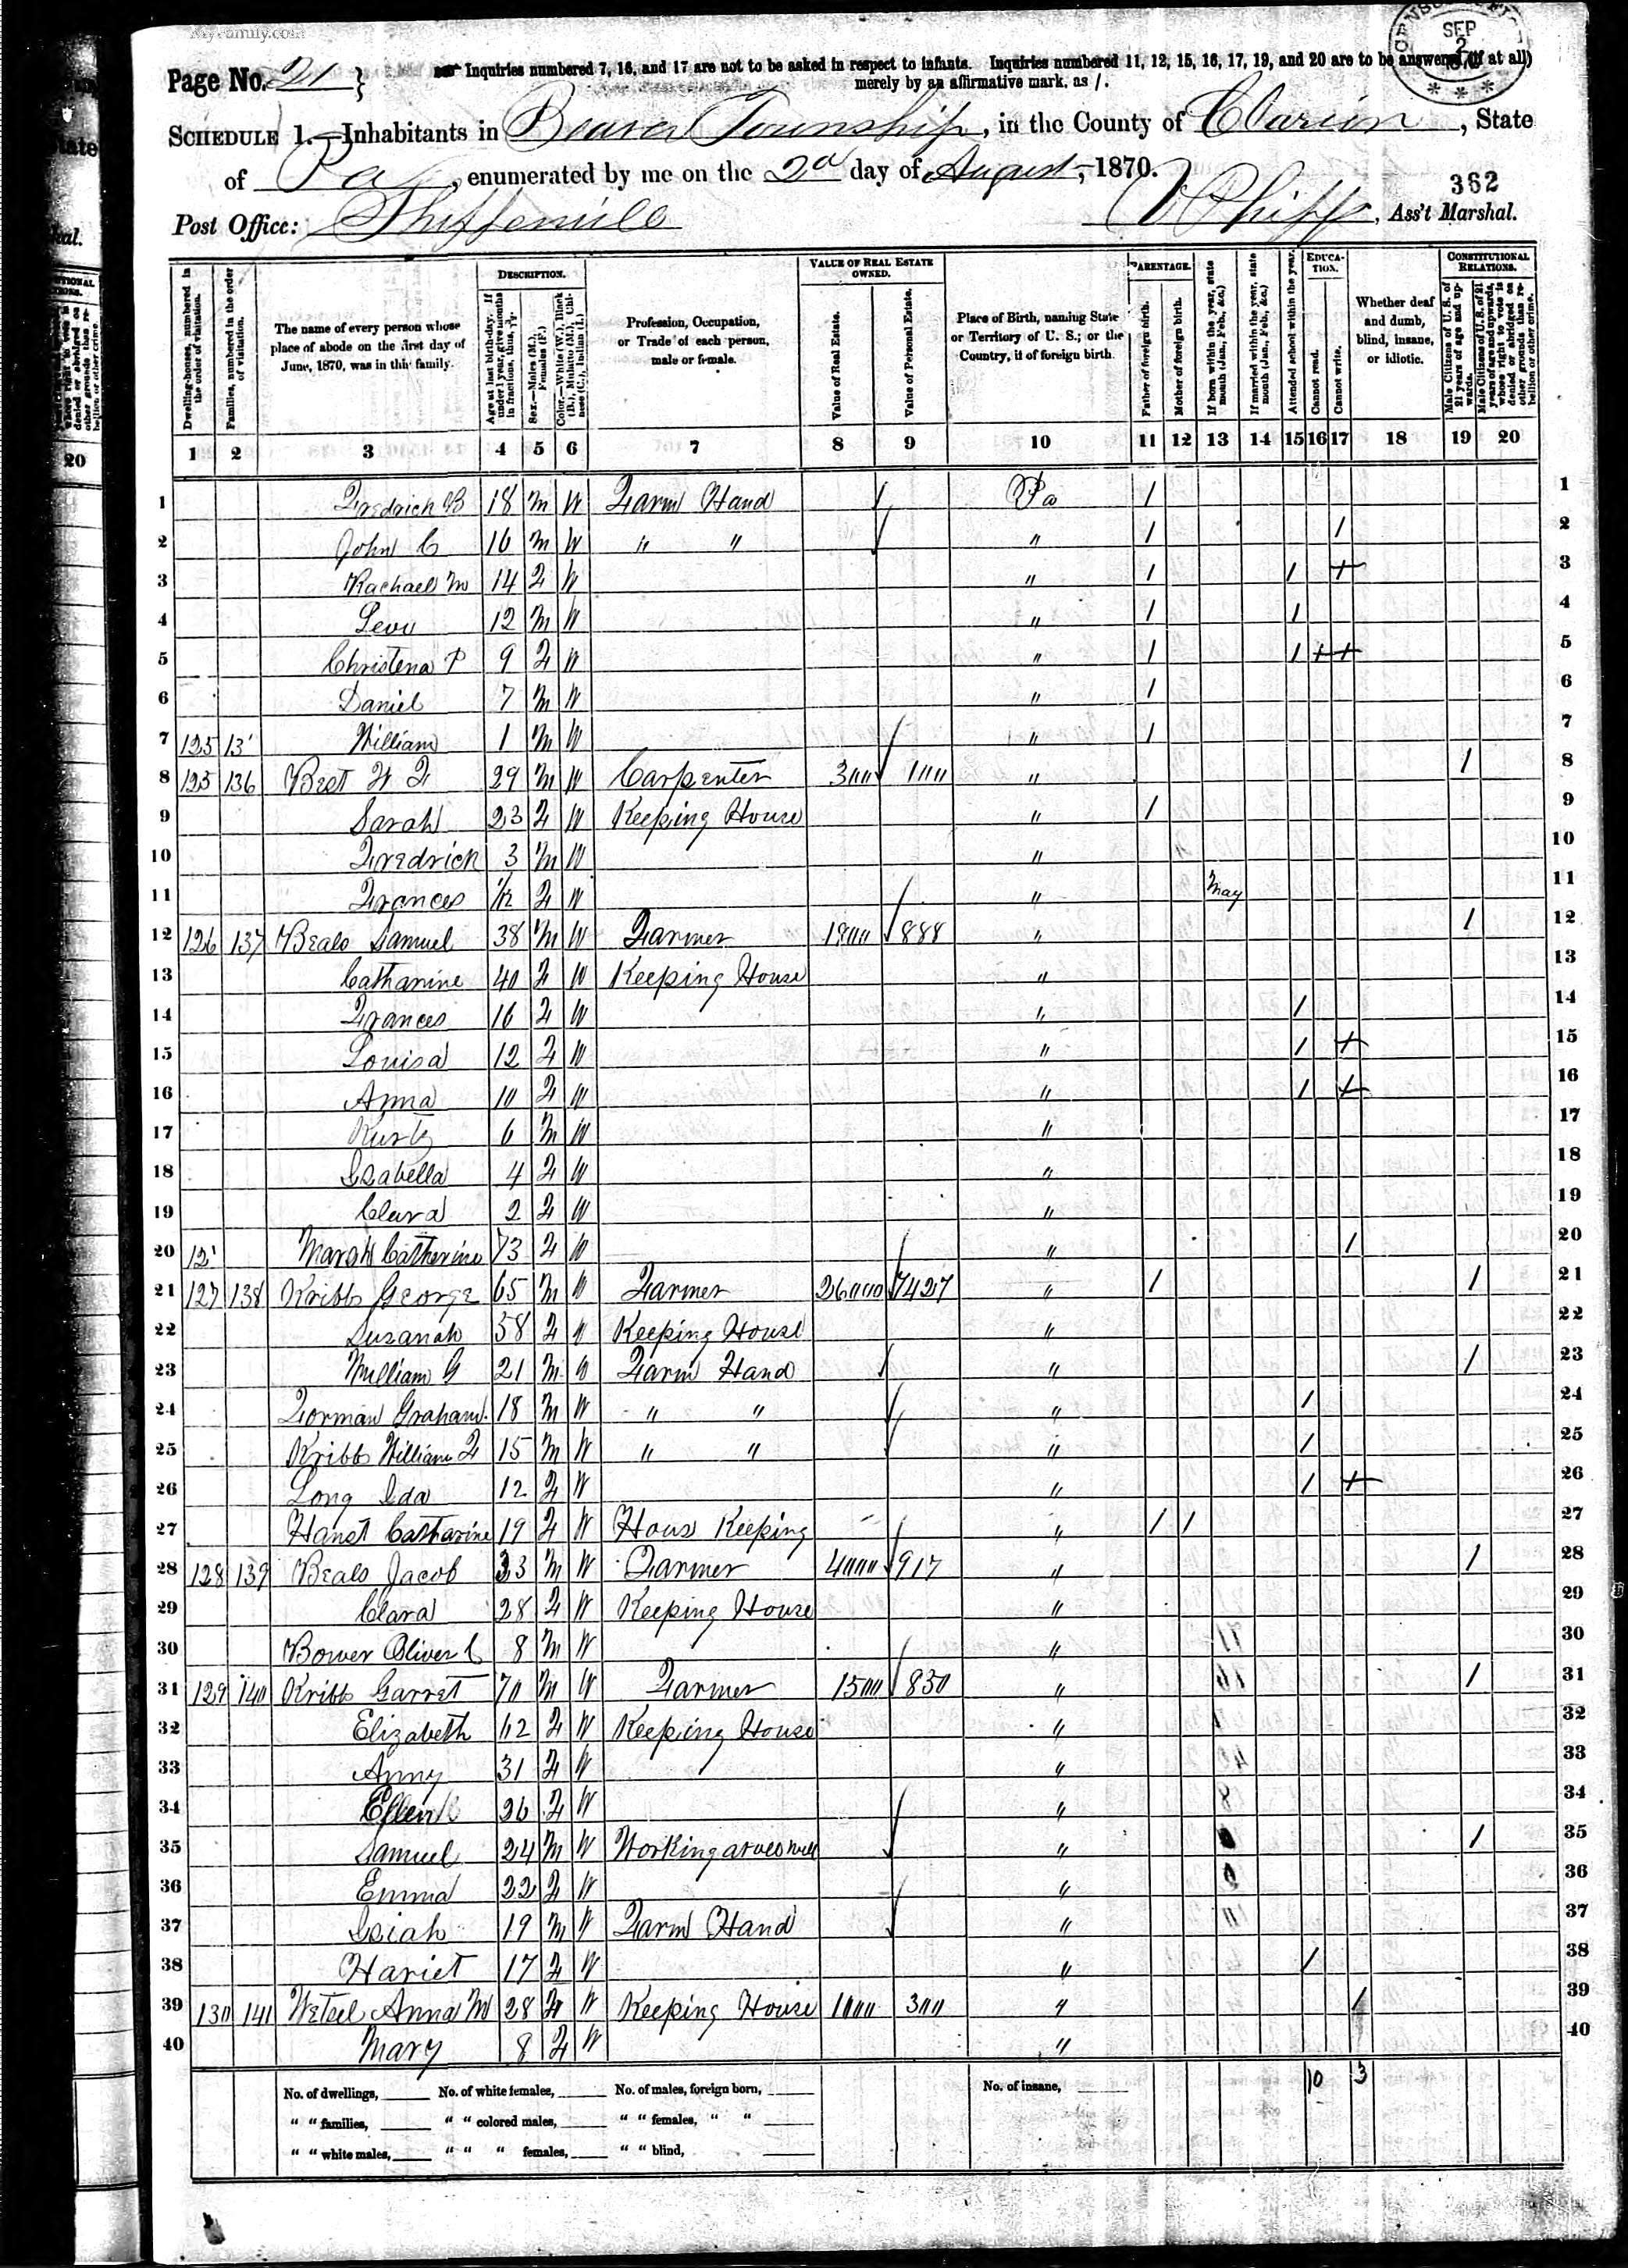 MyFamily.com
CENSUS
SEP
2
Page No. 21 } Inquiries numbered 7, 16, and 17 are not to be asked in respect to infants. Inquiries numbered 11, 12, 15, 16, 17, 19, and 20 are to be answered (if at all)
merely by an affirmative mark, as /.
SCHEDULE 1.—Inhabitants in Beaver Township, in the County of Clarion, State
of Pa, enumerated by me on the 2d day of August, 1870.
362
Post Office: Ass't Marshal.
DESCRIPTION. VALUE OF REAL ESTATE OWNED. PARENTAGE. EDUCATION. CONSTITUTIONAL RELATIONS.
Dwelling-houses, numbered in the order of visitation.
Families, numbered in the order of visitation.
The name of every person whose place of abode on the first day of June, 1870, was in this family.
Age at last birth-day. If under 1 year, give months in fractions, thus, 3/12
Sex.—Males (M.), Females (F.)
Color.—White (W.), Black (B.), Mulatto (M.), Chinese (C.), Indian (I.)
Profession, Occupation, or Trade of each person, male or female.
Value of Real Estate.
Value of Personal Estate.
Place of Birth, naming State or Territory of U. S.; or the Country, if of foreign birth.
Father of foreign birth.
Mother of foreign birth.
If born within the year, state month (Jan., Feb., &c.)
If married within the year, state month (Jan., Feb., &c.)
Attended school within the year.
Cannot read.
Cannot write.
Whether deaf and dumb, blind, insane, or idiotic.
Male Citizens of U. S. of 21 years of age and upwards.
Male Citizens of U. S. of 21 years of age and upwards, whose right to vote is denied or abridged on other grounds than rebellion or other crime.
1 2 3 4 5 6 7 8 9 10 11 12 13 14 15 16 17 18 19 20
1 Fredrich B 18 M W Farm Hand Pa / 1
2 John C 16 M W " " " / / 2
3 Rachael M 14 F W " / / + 3
4 Levi 12 M W " / / 4
5 Christena P 9 F W " / / + + 5
6 Daniel 7 M W " / 6
7 125 13 William 1 M W " / 7
8 125 136 Best W F 29 M W Carpenter 300 100 " / 8
9 Sarah 23 F W Keeping House " / 9
10 Fredrich 3 M W " 10
11 Frances 1/12 F W " May 11
12 126 137 Beals Samuel 38 M W Farmer 1800 888 " / 12
13 Catharine 40 F W Keeping House " 13
14 Frances 16 F W " / 14
15 Louisa 12 F W " / + 15
16 Anna 10 F W " / + 16
17 Kurtz 6 M W " 17
18 Isabella 4 F W " 18
19 Clara 2 F W " 19
20 12 Marsh Catherine 73 F W " / 20
21 127 138 Kribbs George 65 M W Farmer 26000 7427 " / / 21
22 Susanah 58 F W Keeping House " 22
23 William G 21 M W Farm Hand " / 23
24 Forman Graham 18 M W " " " / 24
25 Kribbs William F 15 M W " " " / 25
26 Long Ida 12 F W " / + 26
27 Hanst Catharine 19 F W Hous Keeping " / / 27
28 128 139 Beals Jacob 33 M W Farmer 4000 917 " / 28
29 Clara 28 F W Keeping House " 29
30 Bower Oliver C 8 M W " 30
31 129 140 Kribbs Garret 70 M W Farmer 1500 850 " / 31
32 Elizabeth 62 F W Keeping House " 32
33 Anny 31 F W " 33
34 Ellen 26 F W " 34
35 Samuel 24 M W Working at " / 35
36 Emma 22 F W " 36
37 Isiah 19 M W Farm Hand " 37
38 Hariet 17 F W " / 38
39 130 141 Anna M 28 F W Keeping House 1000 300 " / 39
40 Mary 8 F W " 40
10 3
No. of dwellings, No. of white females, No. of males, foreign born, No. of insane,
" " families, " " colored males, " " females, " "
" " white males, " " " females, " " blind,